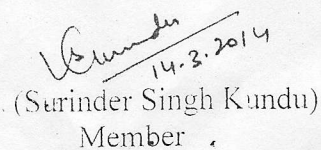 14.3.2014
(Surinder Singh Kundu)
Member